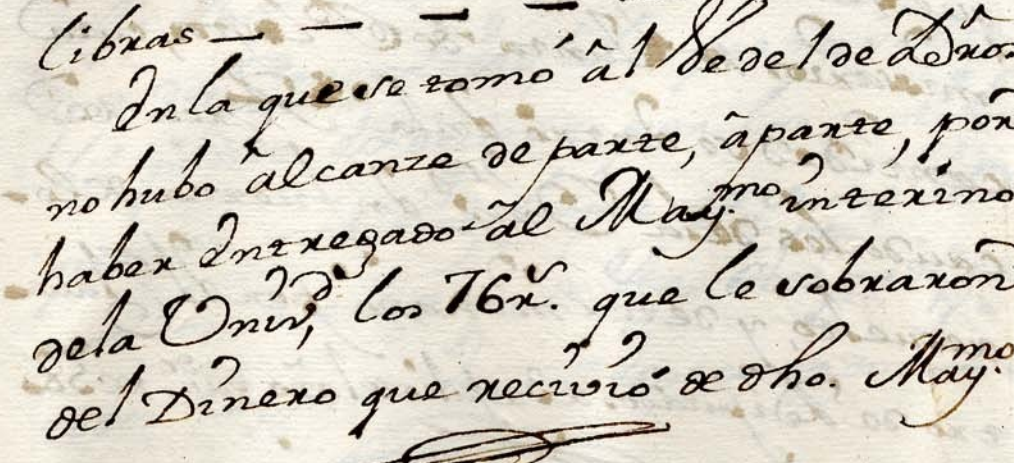 libras — — — —
En la que se tomó â l de del de
no hubo âlcanze de parte, âparte, por
haber Entregado âl May.mo interino
dela Univd, los 76rs. que le sobraron
del Dinero que recivió de dho. May.mo